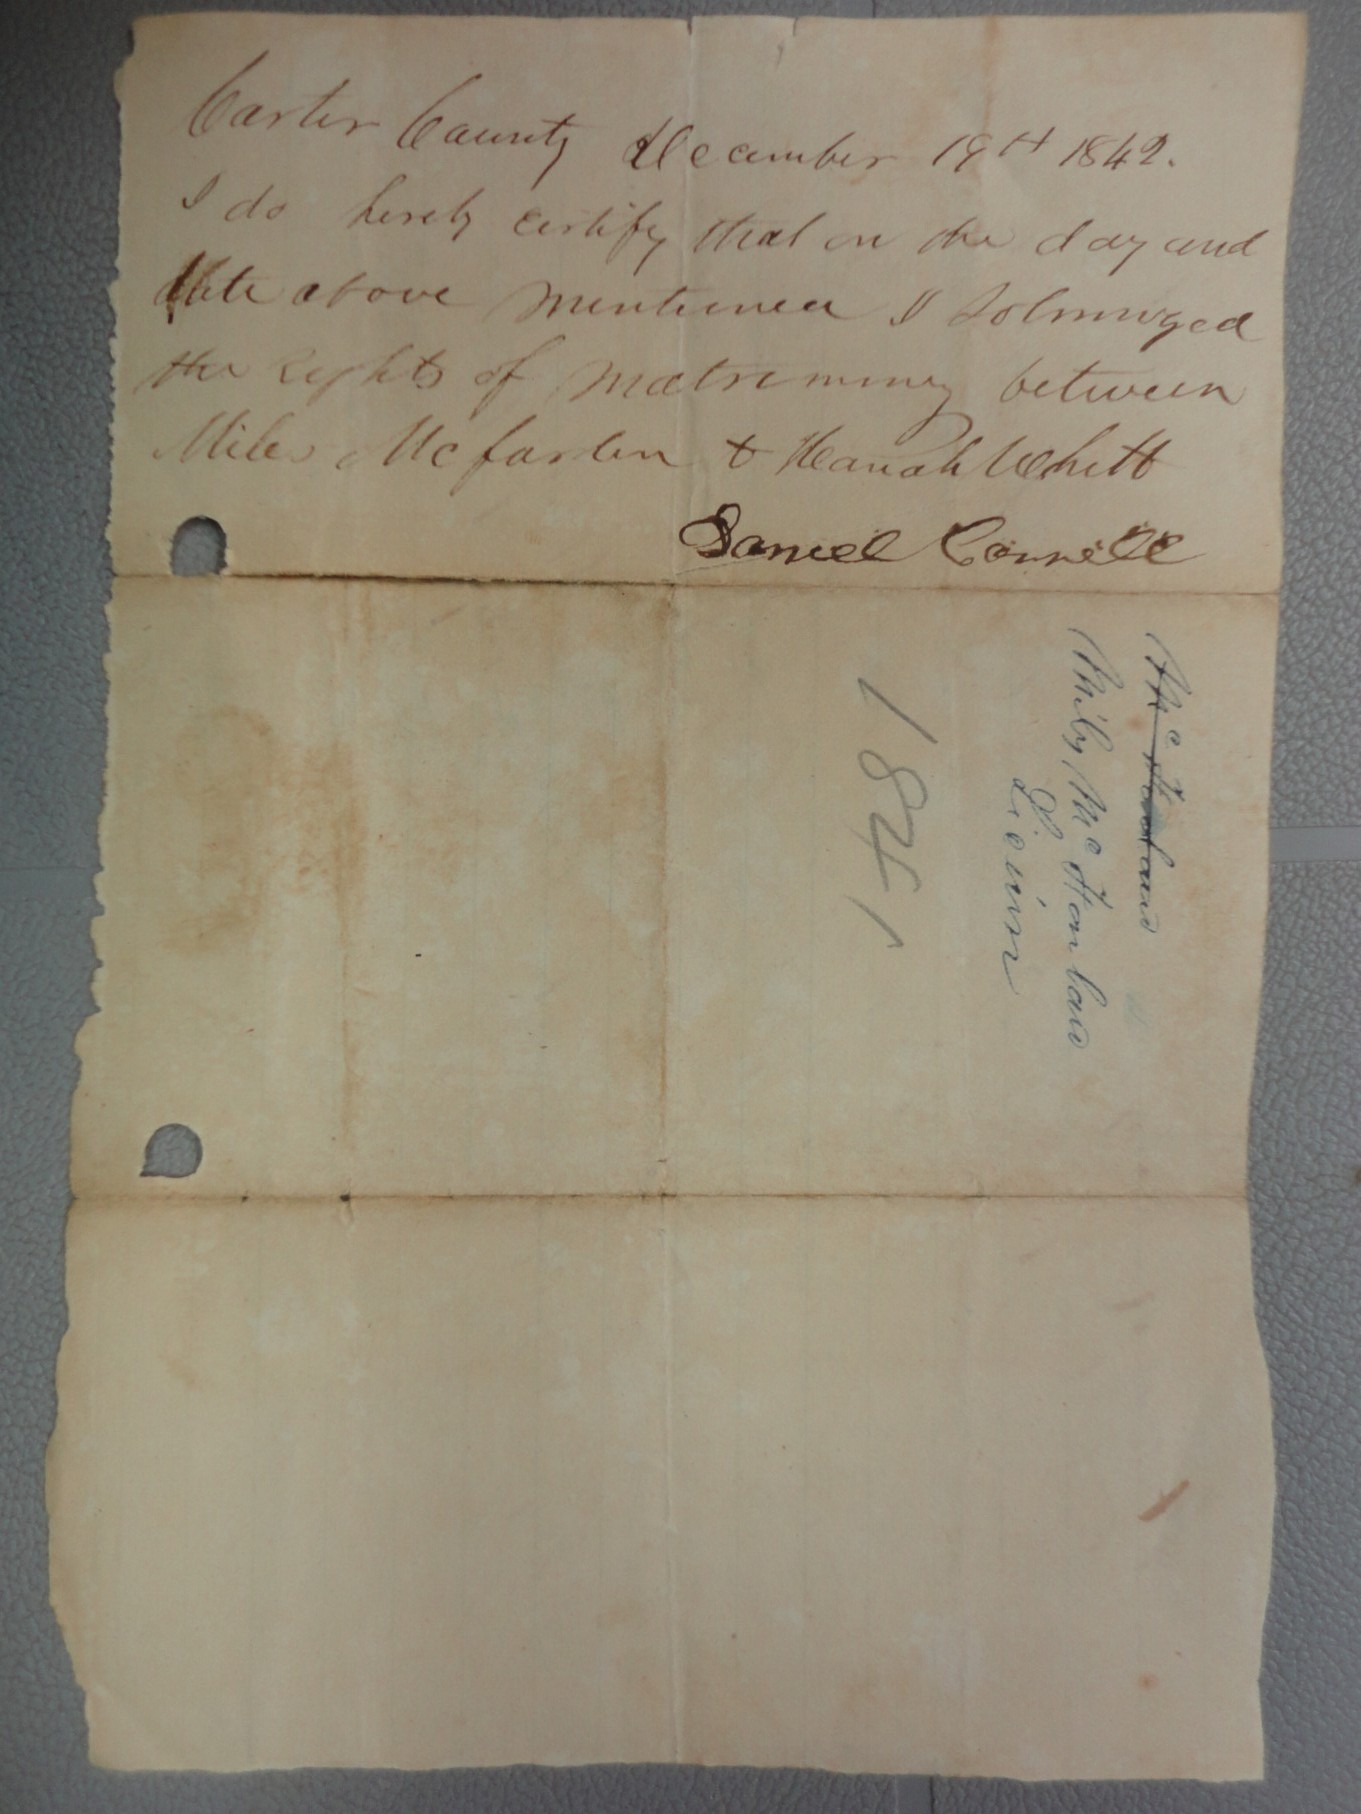 Carter County December 19th 1842.
I do herely certify that on the day and
date above mentioned I Solmnized
the Rights of Matrimony between
Miles Mcfarlen & Hanah Whitt
Daniel Connell
Mc
Mc
1841